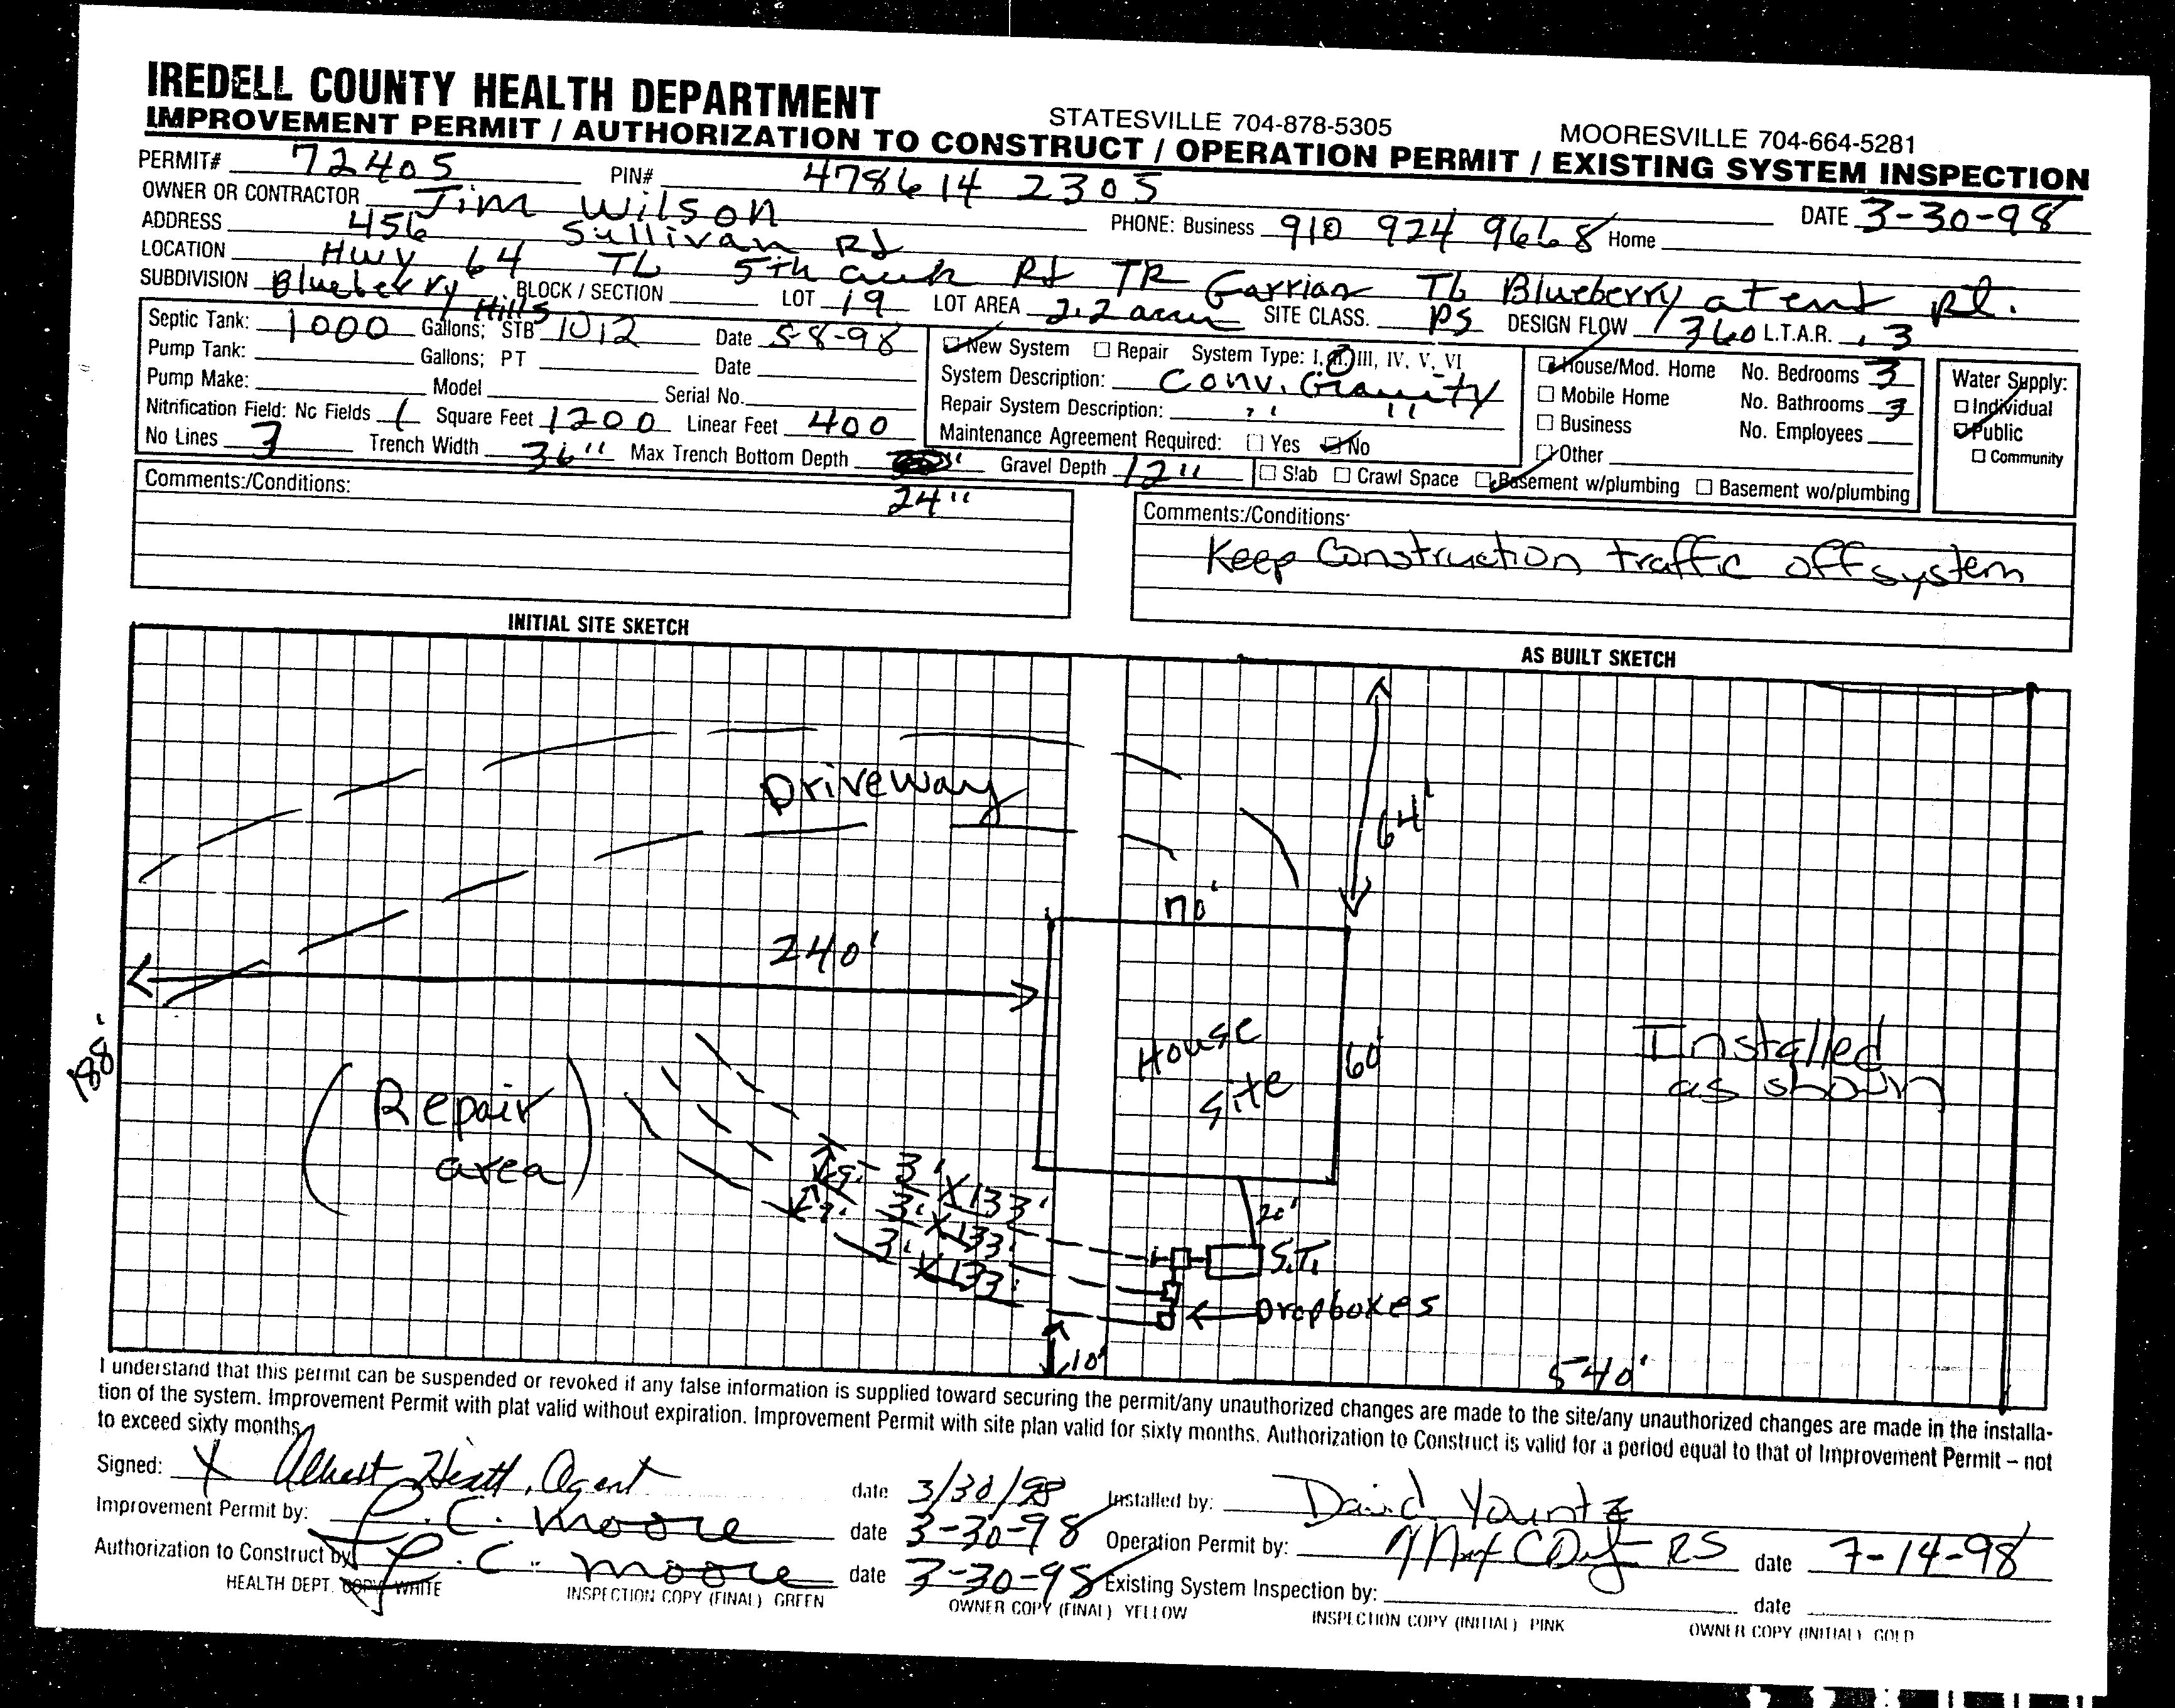 IREDELL COUNTY HEALTH DEPARTMENT
STATESVILLE 704-878-5305 MOORESVILLE 704-664-5281
IMPROVEMENT PERMIT / AUTHORIZATION TO CONSTRUCT / OPERATION PERMIT / EXISTING SYSTEM INSPECTION
PERMIT# 72405 PIN# 478614 2305
OWNER OR CONTRACTOR Jim Wilson DATE 3-30-98
ADDRESS 456 Sullivan Rd PHONE: Business 910 924 9668 Home
LOCATION Hwy 64 TL 5th Rd TR TL Blueberry at end Rd.
SUBDIVISION Blueberry Hills BLOCK / SECTION LOT 19 LOT AREA 2.2 SITE CLASS. PS DESIGN FLOW 360 L.T.A.R. .3
Septic Tank: 1000 Gallons; STB 1012 Date 5-8-98
Pump Tank: Gallons; PT Date
Pump Make: Model Serial No.
Nitrification Field: No Fields 1 Square Feet 1200 Linear Feet 400
No Lines 3 Trench Width 36" Max Trench Bottom Depth 24" Gravel Depth 12"
New System Repair System Type: I, II, III, IV, V, VI
System Description: Conv. Gravity
Repair System Description: " "
Maintenance Agreement Required: Yes No
Slab Crawl Space Basement w/plumbing Basement wo/plumbing
House/Mod. Home No. Bedrooms 3
Mobile Home No. Bathrooms 3
Business No. Employees
Other
Water Supply:
Individual
Public
Community
Comments:/Conditions:
Comments:/Conditions:
Keep Construction traffic off system
INITIAL SITE SKETCH
AS BUILT SKETCH
Driveway
64'
70'
240'
House
Site
60'
Installed
as shown
188'
(Repair
area)
9' 3' X 133'
9' 3' X 133'
3' X 133'
20'
S.T.
Dropboxes
10'
540'
I understand that this permit can be suspended or revoked if any false information is supplied toward securing the permit/any unauthorized changes are made to the site/any unauthorized changes are made in the installa-
tion of the system. Improvement Permit with plat valid without expiration. Improvement Permit with site plan valid for sixty months. Authorization to Construct is valid for a period equal to that of Improvement Permit – not
to exceed sixty months.
Signed: X Albert Heath, Agent date 3/30/98 Installed by: David Yountz
Improvement Permit by: C. Moore date 3-30-98 Operation Permit by: RS date 7-14-98
Authorization to Construct by: C. Moore date 3-30-98 Existing System Inspection by: date
HEALTH DEPT. COPY WHITE INSPECTION COPY (FINAL) GREEN OWNER COPY (FINAL) YELLOW INSPECTION COPY (INITIAL) PINK OWNER COPY (INITIAL) GOLD